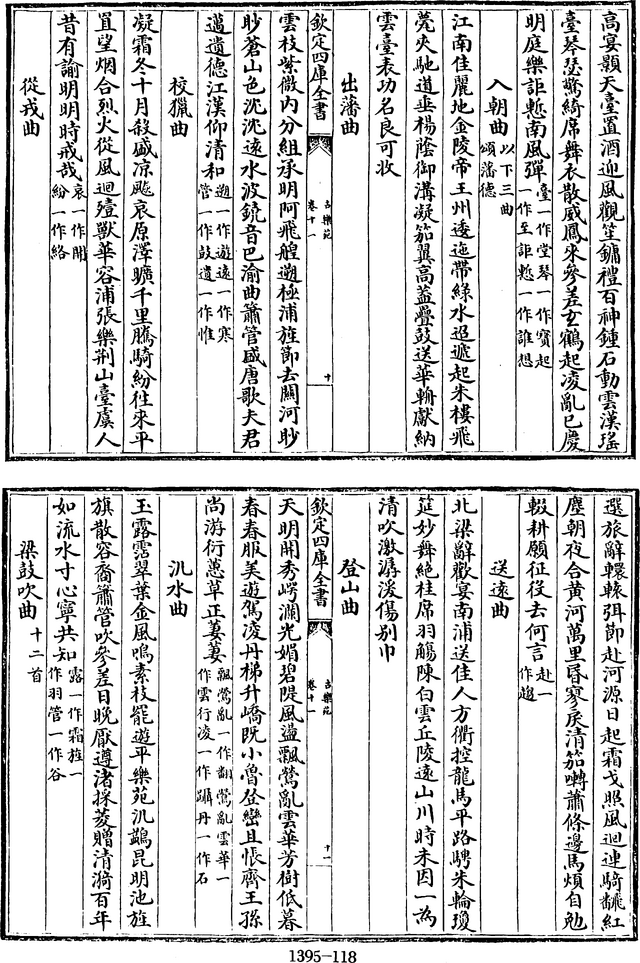 高宴顥天臺置酒迎風觀笙鏞禮百神鍾石動雲漢瑤
臺琴瑟驚綺席舞衣散威鳳來參差玄鶴起凌亂已慶
明庭樂詎慙南風彈臺一作堂琴一作寳起
一作至詎慙一作誰想
入朝曲以下三曲
頌藩德
江南佳麗地金陵帝王州逶迤帶緑水迢遞起朱樓飛
甍夾馳道垂楊蔭御溝凝笳翼高蓋疊鼓送華輈獻納
雲臺表功名良可收
出藩曲
欽定四庫全書
古樂苑
卷十一
十
雲枝紫微内分組承明阿飛艎遡極浦旌節去關河眇
眇蒼山色沈沈逺水波鐃音巴渝曲簫管盛唐歌夫君
邁遺德江漢仰清和遡一作遊逺一作寒
管一作鼓遺一作惟
校獵曲
凝霜冬十月殺盛凉飈哀原澤曠千里騰騎紛往來平
罝望烟合烈火從風迴殪獸華容浦張樂荆山臺虞人
昔有諭明明時戒哉哀一作開
紛一作絡
從戎曲
選旅辭轘轅弭節赴河源日起霜戈照風迴連騎翻紅
塵朝夜合黄河萬里昏寥戾清笳囀蕭條邊馬煩自勉
輟耕願征役去何言赴一
作趨
送逺曲
北梁辭歡宴南浦送佳人方衢控龍馬平路騁朱輪瓊
筵妙舞絶桂席羽觴陳白雲丘陵逺山川時未因一為
清吹激潺湲傷别巾
登山曲
欽定四庫全書
古樂苑
卷十一
十一
天明開秀崿瀾光媚碧隄風盪飄鶯亂雲華芳樹低暮
春春服美遊駕淩丹梯升嶠既小魯登巒且悵齊王孫
尚游衍蕙草正萋萋飄鶯亂一作翻鶯亂雲華一
作雲行凌一作躡丹一作石
汎水曲
玉露霑翠葉金風鳴素枝罷遊平樂苑汎鷁昆明池旌
旗散容裔簫管吹參差日晚厭遵渚採菱贈清漪百年
如流水寸心寧共知露一作霜旌一
作羽管一作谷
梁鼓吹曲十二首
1395-118